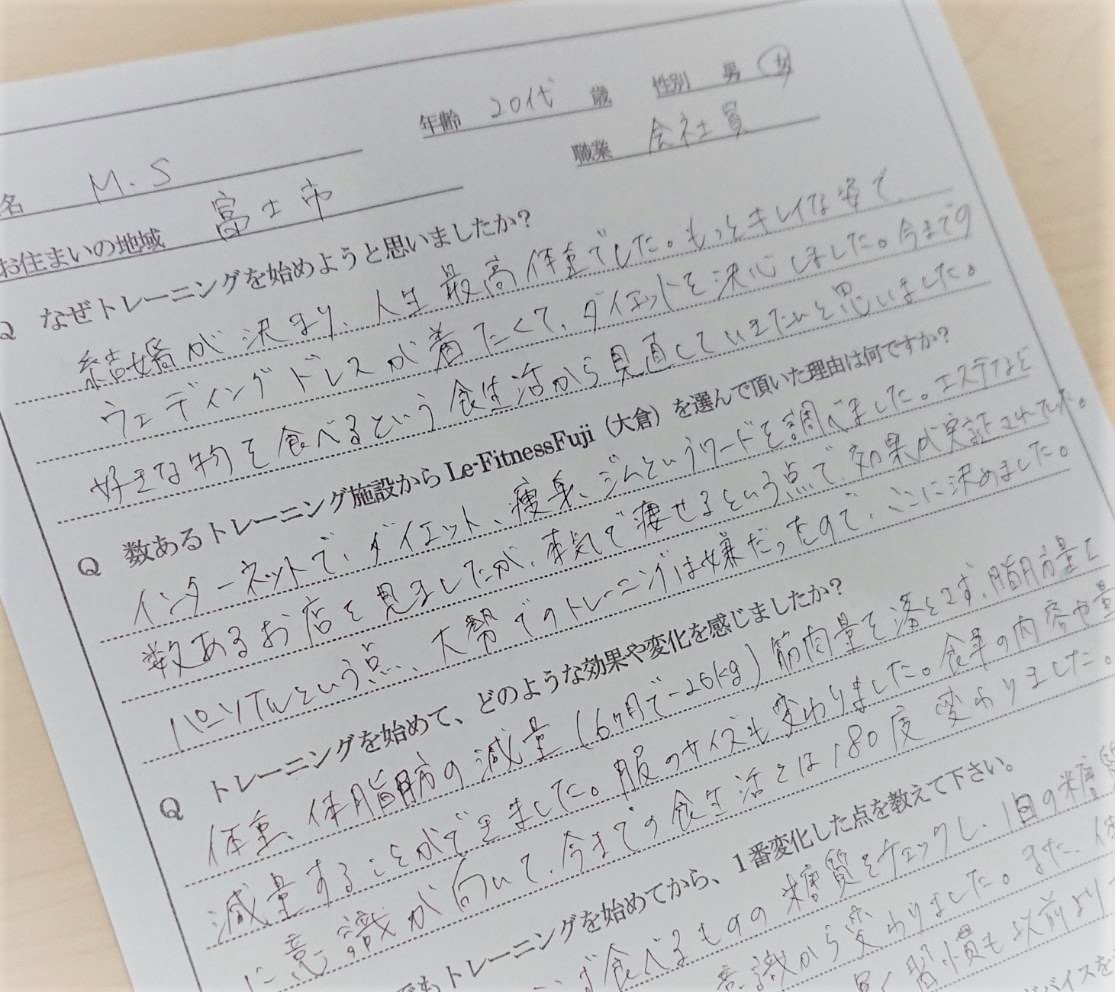 名 M.S 年齢 20代 歳 性別 男 女
お住まいの地域 富士市 職業 会社員
Q なぜトレーニングを始めようと思いましたか?
結婚が決まり、人生最高体重でした。もっとキレイな姿で
ウェディングドレスが着たくて、ダイエットを決心しました。今までの
好きな物を食べるという食生活から見直していきたいと思いました。
Q 数あるトレーニング施設から Le-FitnessFuji(大倉)を選んで頂いた理由は何ですか?
インターネットで、ダイエット、痩身、ジムというワードを調べました。エステなど
数あるお店を見ましたが、本気で痩せるという点で、効果が実証された
パーソナルという点、大勢でのトレーニングは嫌だったので、ここに決めました。
Q トレーニングを始めて、どのような効果や変化を感じましたか?
体重、体脂肪の減量(6ヶ月で-20kg)筋肉量を落とさず、脂肪量を
減量することができました。服のサイズも変わりました。食事の内容や量
に意識が向いて、今までの食生活とは180度変わりました。
トレーニングを始めてから、1番変化した点を教えて下さい。
食べるものの糖質をチェックし、1回の糖質
意識から変わりました。また、
習慣も以前より